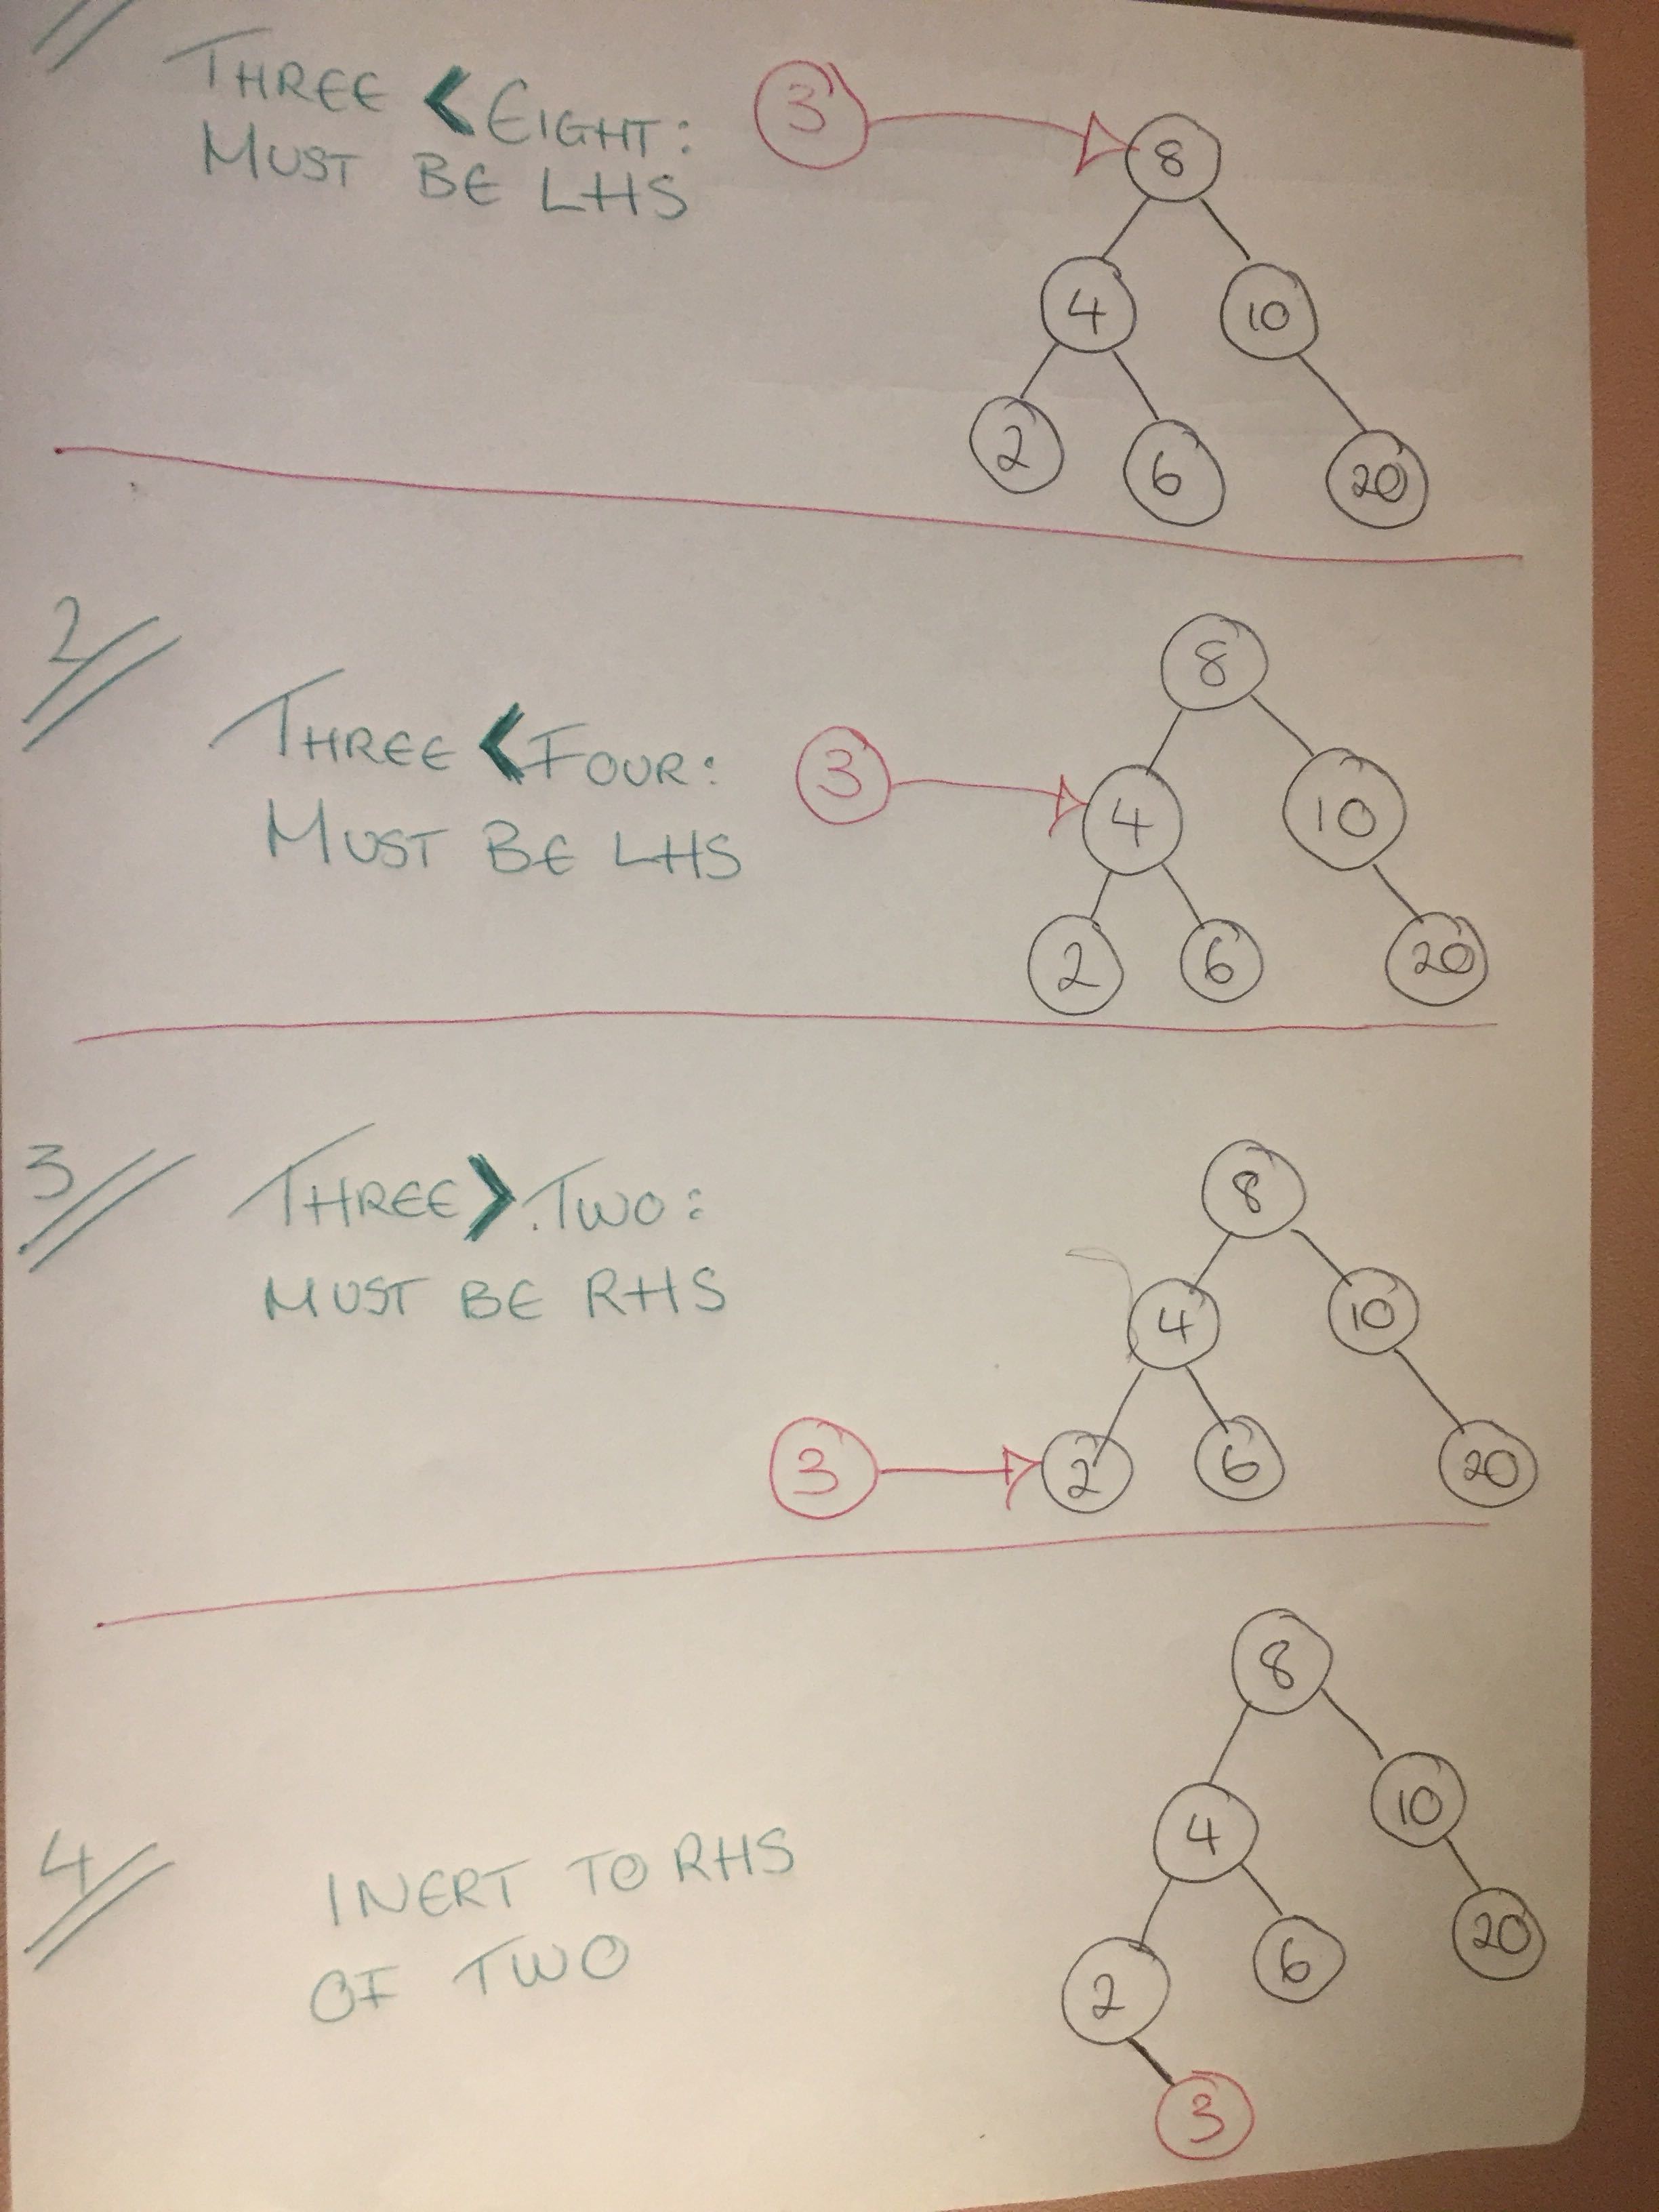 THREE < EIGHT:
MUST BE LHS
3
8
4 10
2 6 20
2
THREE < FOUR:
MUST BE LHS
3
8
4 10
2 6 20
3
THREE > TWO:
MUST BE RHS
3
8
4 10
2 6 20
4
INERT TO RHS
OF TWO
8
4 10
2 6 20
3